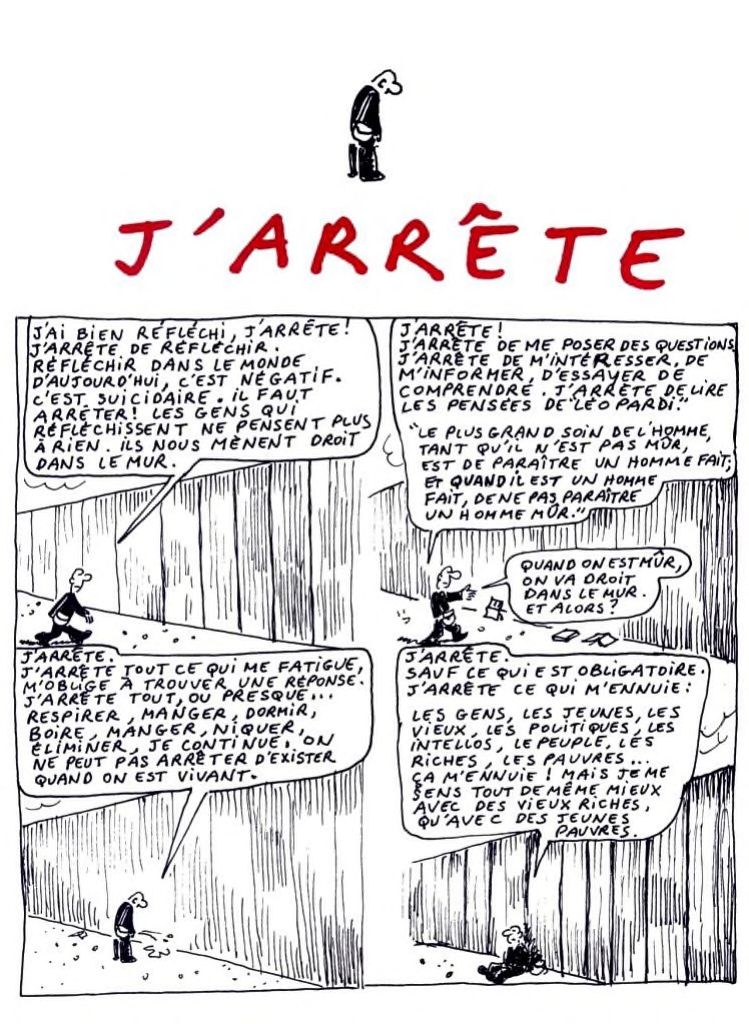 J'ARRÊTE
J'AI BIEN RÉFLÉCHI, J'ARRÊTE!
J'ARRÊTE DE RÉFLECHIR.
RÉFLÉCHIR DANS LE MONDE
D'AUJOURD'HUI, C'EST NÉGATIF.
C'EST SUICIDAIRE. IL FAUT
ARRÊTER! LES GENS QUI
RÉFLÉCHISSENT NE PENSENT PLUS
À RIEN. ILS NOUS MÈNENT DROIT
DANS LE MUR.
J'ARRÊTE!
J'ARRÊTE DE ME POSER DES QUESTIONS
J'ARRÊTE DE M'INTÉRESSER, DE
M'INFORMER, D'ESSAYER DE
COMPRENDRE. J'ARRÊTE DE LIRE
LES PENSÉES DE "LÉO PARDI."
"LE PLUS GRAND SOIN DE L'HOMME,
TANT QU'IL N'EST PAS MÛR,
EST DE PARAÎTRE UN HOMME FAIT,
ET QUAND IL EST UN HOMME
FAIT, DE NE PAS PARAÎTRE
UN HOMME MÛR."
QUAND ON EST MÛR,
ON VA DROIT
DANS LE MUR.
ET ALORS?
J'ARRÊTE.
J'ARRÊTE TOUT CE QUI ME FATIGUE,
M'OBLIGE À TROUVER UNE RÉPONSE.
J'ARRÊTE TOUT, OU PRESQUE...
RESPIRER, MANGER, DORMIR,
BOIRE, MANGER, NIQUER,
ÉLIMINER, JE CONTINUE. ON
NE PEUT PAS ARRÊTER D'EXISTER
QUAND ON EST VIVANT.
J'ARRÊTE.
SAUF CE QUI EST OBLIGATOIRE.
J'ARRÊTE CE QUI M'ENNUIE:
LES GENS, LES JEUNES, LES
VIEUX, LES POLITIQUES, LES
INTELLOS, LE PEUPLE, LES
RICHES, LES PAUVRES...
ÇA M'ENNUIE! MAIS JE ME
SENS TOUT DE MÊME MIEUX
AVEC DES VIEUX RICHES,
QU'AVEC DES JEUNES
PAUVRES.